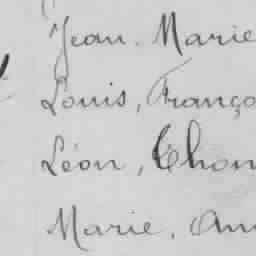 Jean. Marie
Louis, Franço
Léon, Thom
Marie, Ann